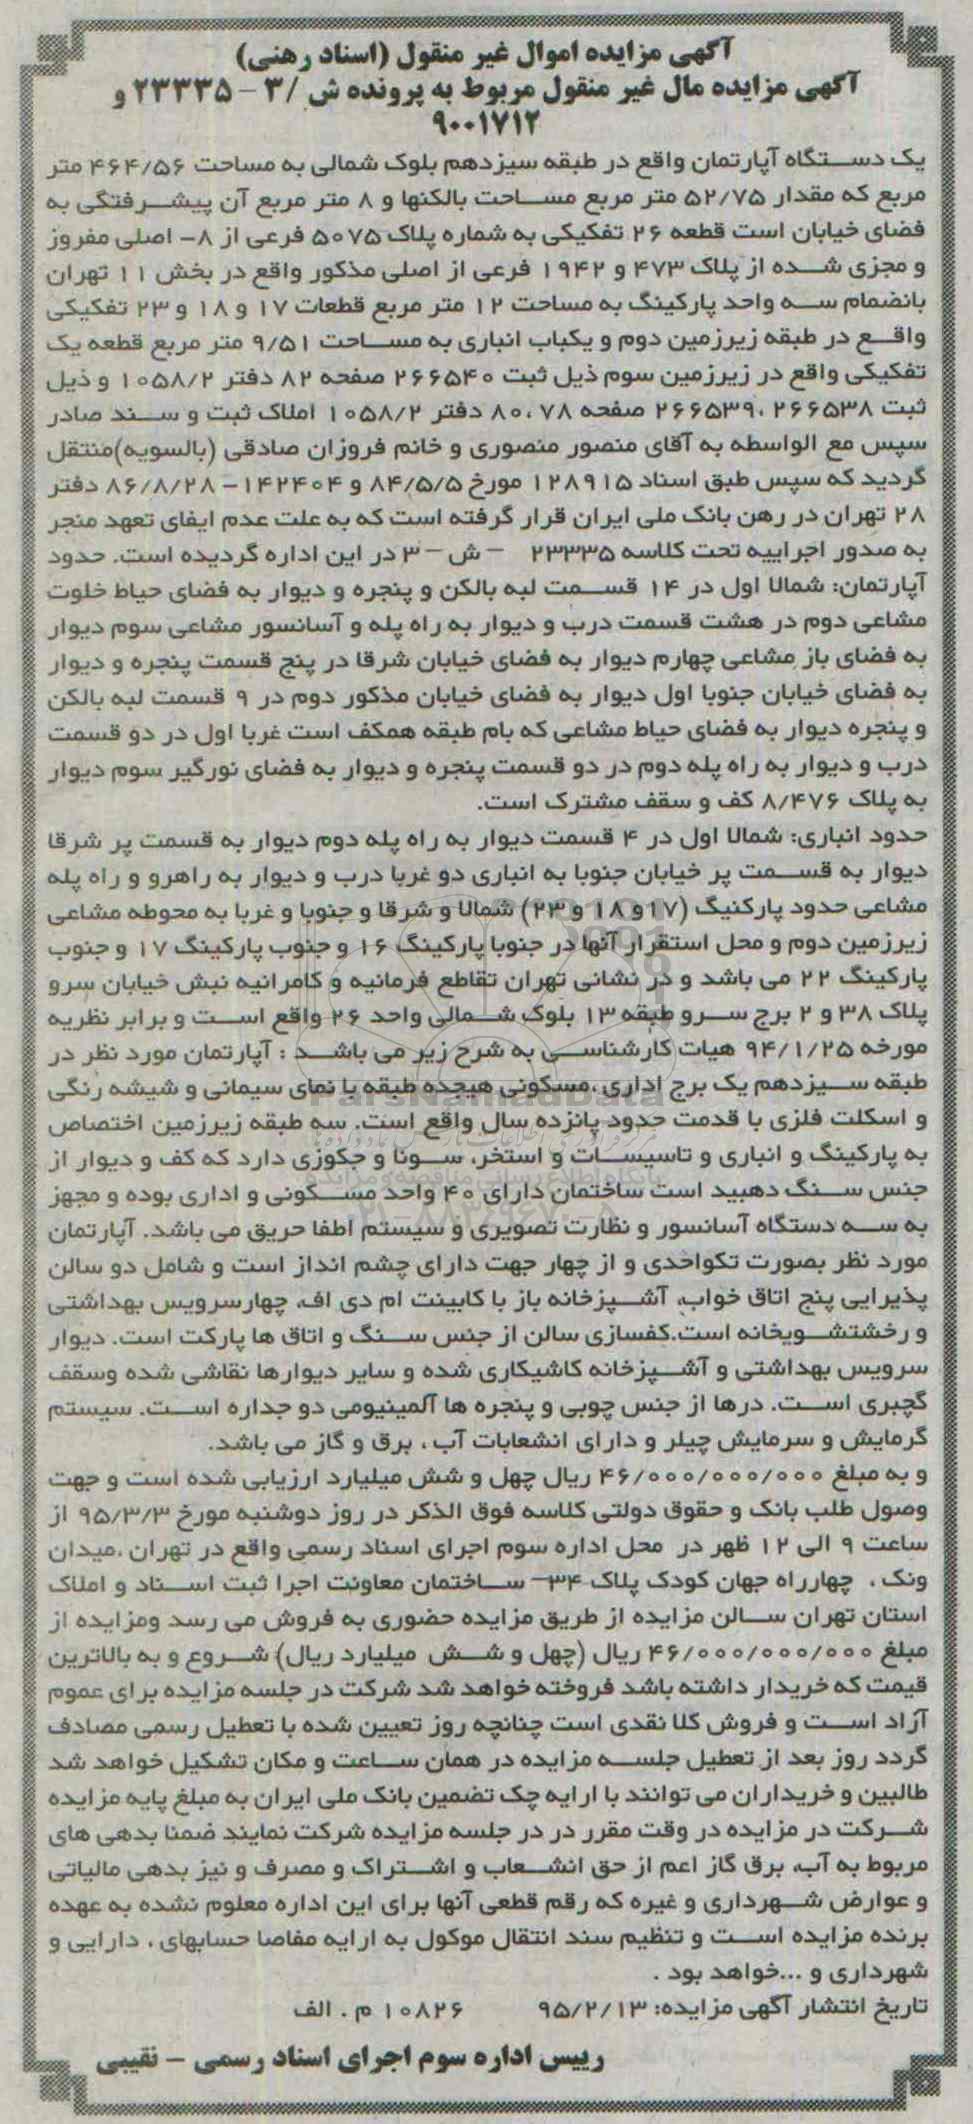 آگهی مزایده اموال غیر منقول (اسناد رهنی)
آگهی مزایده مال غیر منقول مربوط به پرونده ش /۳ - ۲۳۳۳۵ و
۹۰۰۱۷۱۲
یک دستگاه آپارتمان واقع در طبقه سیزدهم بلوک شمالی به مساحت ۴۶۴/۵۶ متر
مربع که مقدار ۵۲/۷۵ متر مربع مساحت بالکنها و ۸ متر مربع آن پیشرفتگی به
فضای خیابان است قطعه ۲۶ تفکیکی به شماره پلاک ۵۰۷۵ فرعی از ۸- اصلی مفروز
و مجزی شده از پلاک ۴۷۳ و ۱۹۴۲ فرعی از اصلی مذکور واقع در بخش ۱۱ تهران
بانضمام سه واحد پارکینگ به مساحت ۱۲ متر مربع قطعات ۱۷ و ۱۸ و ۲۳ تفکیکی
واقع در طبقه زیرزمین دوم و یکباب انباری به مساحت ۹/۵۱ متر مربع قطعه یک
تفکیکی واقع در زیرزمین سوم ذیل ثبت ۲۶۶۵۴۰ صفحه ۸۲ دفتر ۱۰۵۸/۲ و ذیل
ثبت ۲۶۶۵۳۸ ،۲۶۶۵۳۹ صفحه ۷۸ ،۸۰ دفتر ۱۰۵۸/۲ املاک ثبت و سند صادر
سپس مع الواسطه به آقای منصور منصوری و خانم فروزان صادقی (بالسویه)منتقل
گردید که سپس طبق اسناد ۱۲۸۹۱۵ مورخ ۸۴/۵/۵ و ۱۴۲۴۰۴ - ۸۶/۸/۲۸ دفتر
۲۸ تهران در رهن بانک ملی ایران قرار گرفته است که به علت عدم ایفای تعهد منجر
به صدور اجراییه تحت کلاسه ۲۳۳۳۵ - ش - ۳ در این اداره گردیده است. حدود
آپارتمان: شمالا اول در ۱۴ قسمت لبه بالکن و پنجره و دیوار به فضای حیاط خلوت
مشاعی دوم در هشت قسمت درب و دیوار به راه پله و آسانسور مشاعی سوم دیوار
به فضای باز مشاعی چهارم دیوار به فضای خیابان شرقا در پنج قسمت پنجره و دیوار
به فضای خیابان جنوبا اول دیوار به فضای خیابان مذکور دوم در ۹ قسمت لبه بالکن
و پنجره دیوار به فضای حیاط مشاعی که بام طبقه همکف است غربا اول در دو قسمت
درب و دیوار به راه پله دوم در دو قسمت پنجره و دیوار به فضای نورگیر سوم دیوار
به پلاک ۸/۴۷۶ کف و سقف مشترک است.
حدود انباری: شمالا اول در ۴ قسمت دیوار به راه پله دوم دیوار به قسمت پر شرقا
دیوار به قسمت پر خیابان جنوبا به انباری دو غربا درب و دیوار به راهرو و راه پله
مشاعی حدود پارکنیگ (۱۷و ۱۸ و ۲۳) شمالا و شرقا و جنوبا و غربا به محوطه مشاعی
زیرزمین دوم و محل استقرار آنها در جنوبا پارکینگ ۱۶ و جنوب پارکینگ ۱۷ و جنوب
پارکینگ ۲۲ می باشد و در نشانی تهران تقاطع فرمانیه و کامرانیه نبش خیابان سرو
پلاک ۳۸ و ۲ برج سرو طبقه ۱۳ بلوک شمالی واحد ۲۶ واقع است و برابر نظریه
مورخه ۹۴/۱/۲۵ هیات کارشناسی به شرح زیر می باشد : آپارتمان مورد نظر در
طبقه سیزدهم یک برج اداری ،مسکونی هیجده طبقه با نمای سیمانی و شیشه رنگی
و اسکلت فلزی با قدمت حدود پانزده سال واقع است. سه طبقه زیرزمین اختصاص
به پارکینگ و انباری و تاسیسات و استخر، سونا و جکوزی دارد که کف و دیوار از
جنس سنگ دهبید است ساختمان دارای ۴۰ واحد مسکونی و اداری بوده و مجهز
به سه دستگاه آسانسور و نظارت تصویری و سیستم اطفا حریق می باشد. آپارتمان
مورد نظر بصورت تکواحدی و از چهار جهت دارای چشم انداز است و شامل دو سالن
پذیرایی پنج اتاق خواب، آشپزخانه باز با کابینت ام دی اف، چهارسرویس بهداشتی
و رخشتشویخانه است.کفسازی سالن از جنس سنگ و اتاق ها پارکت است. دیوار
سرویس بهداشتی و آشپزخانه کاشیکاری شده و سایر دیوارها نقاشی شده وسقف
گچبری است. درها از جنس چوبی و پنجره ها آلمینیومی دو جداره است. سیستم
گرمایش و سرمایش چیلر و دارای انشعابات آب ، برق و گاز می باشد.
و به مبلغ ۴۶/۰۰۰/۰۰۰/۰۰۰ ریال چهل و شش میلیارد ارزیابی شده است و جهت
وصول طلب بانک و حقوق دولتی کلاسه فوق الذکر در روز دوشنبه مورخ ۹۵/۳/۳ از
ساعت ۹ الی ۱۲ ظهر در محل اداره سوم اجرای اسناد رسمی واقع در تهران ،میدان
ونک ، چهارراه جهان کودک پلاک ۳۴- ساختمان معاونت اجرا ثبت اسناد و املاک
استان تهران سالن مزایده از طریق مزایده حضوری به فروش می رسد ومزایده از
مبلغ ۴۶/۰۰۰/۰۰۰/۰۰۰ ریال (چهل و شش میلیارد ریال) شروع و به بالاترین
قیمت که خریدار داشته باشد فروخته خواهد شد شرکت در جلسه مزایده برای عموم
آزاد است و فروش کلا نقدی است چنانچه روز تعیین شده با تعطیل رسمی مصادف
گردد روز بعد از تعطیل جلسه مزایده در همان ساعت و مکان تشکیل خواهد شد
طالبین و خریداران می توانند با ارایه چک تضمین بانک ملی ایران به مبلغ پایه مزایده
شرکت در مزایده در وقت مقرر در در جلسه مزایده شرکت نمایند ضمنا بدهی های
مربوط به آب، برق گاز اعم از حق انشعاب و اشتراک و مصرف و نیز بدهی مالیاتی
و عوارض شهرداری و غیره که رقم قطعی آنها برای این اداره معلوم نشده به عهده
برنده مزایده است و تنظیم سند انتقال موکول به ارایه مفاصا حسابهای ، دارایی و
شهرداری و ...خواهد بود .
تاریخ انتشار آگهی مزایده: ۹۵/۲/۱۳ ۱۰۸۲۶ م . الف
رییس اداره سوم اجرای اسناد رسمی - نقیبی
ParsNamadData